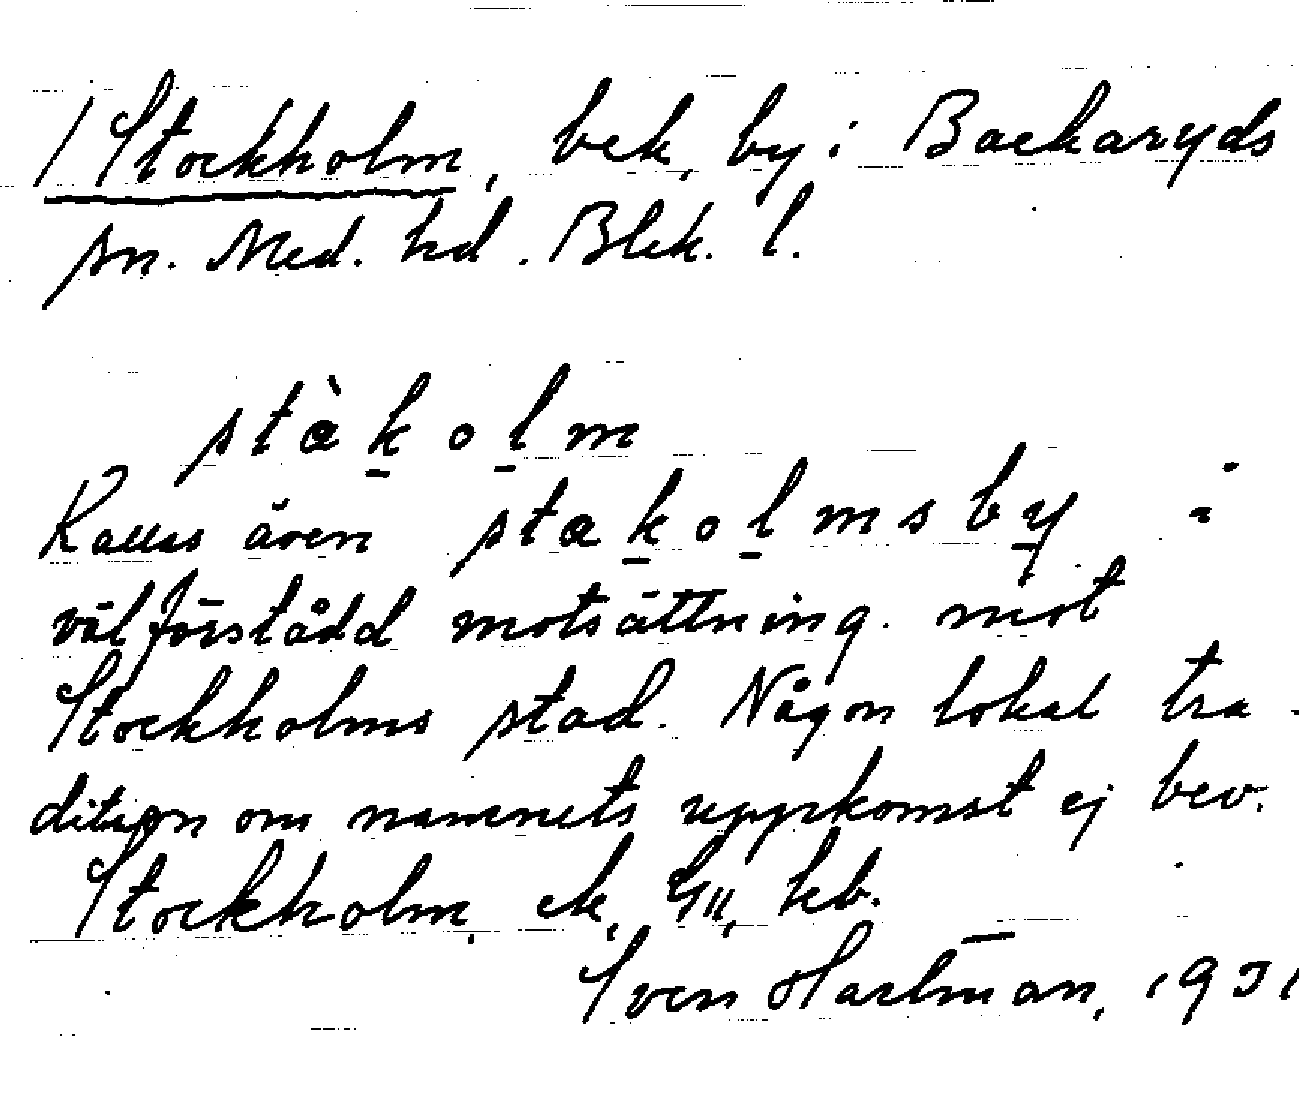 / Stockholm, bek, by i Backaryds
sn. Med. hd. Blek. l.
stàkolm
Kallas även stakolmsby i
välförstådd motsättning mot
Stockholms stad. Någon lokal tra-
dition om namnets uppkomst ej bev.
Stockholm, ek, kb.
Sven Hartman, 1931